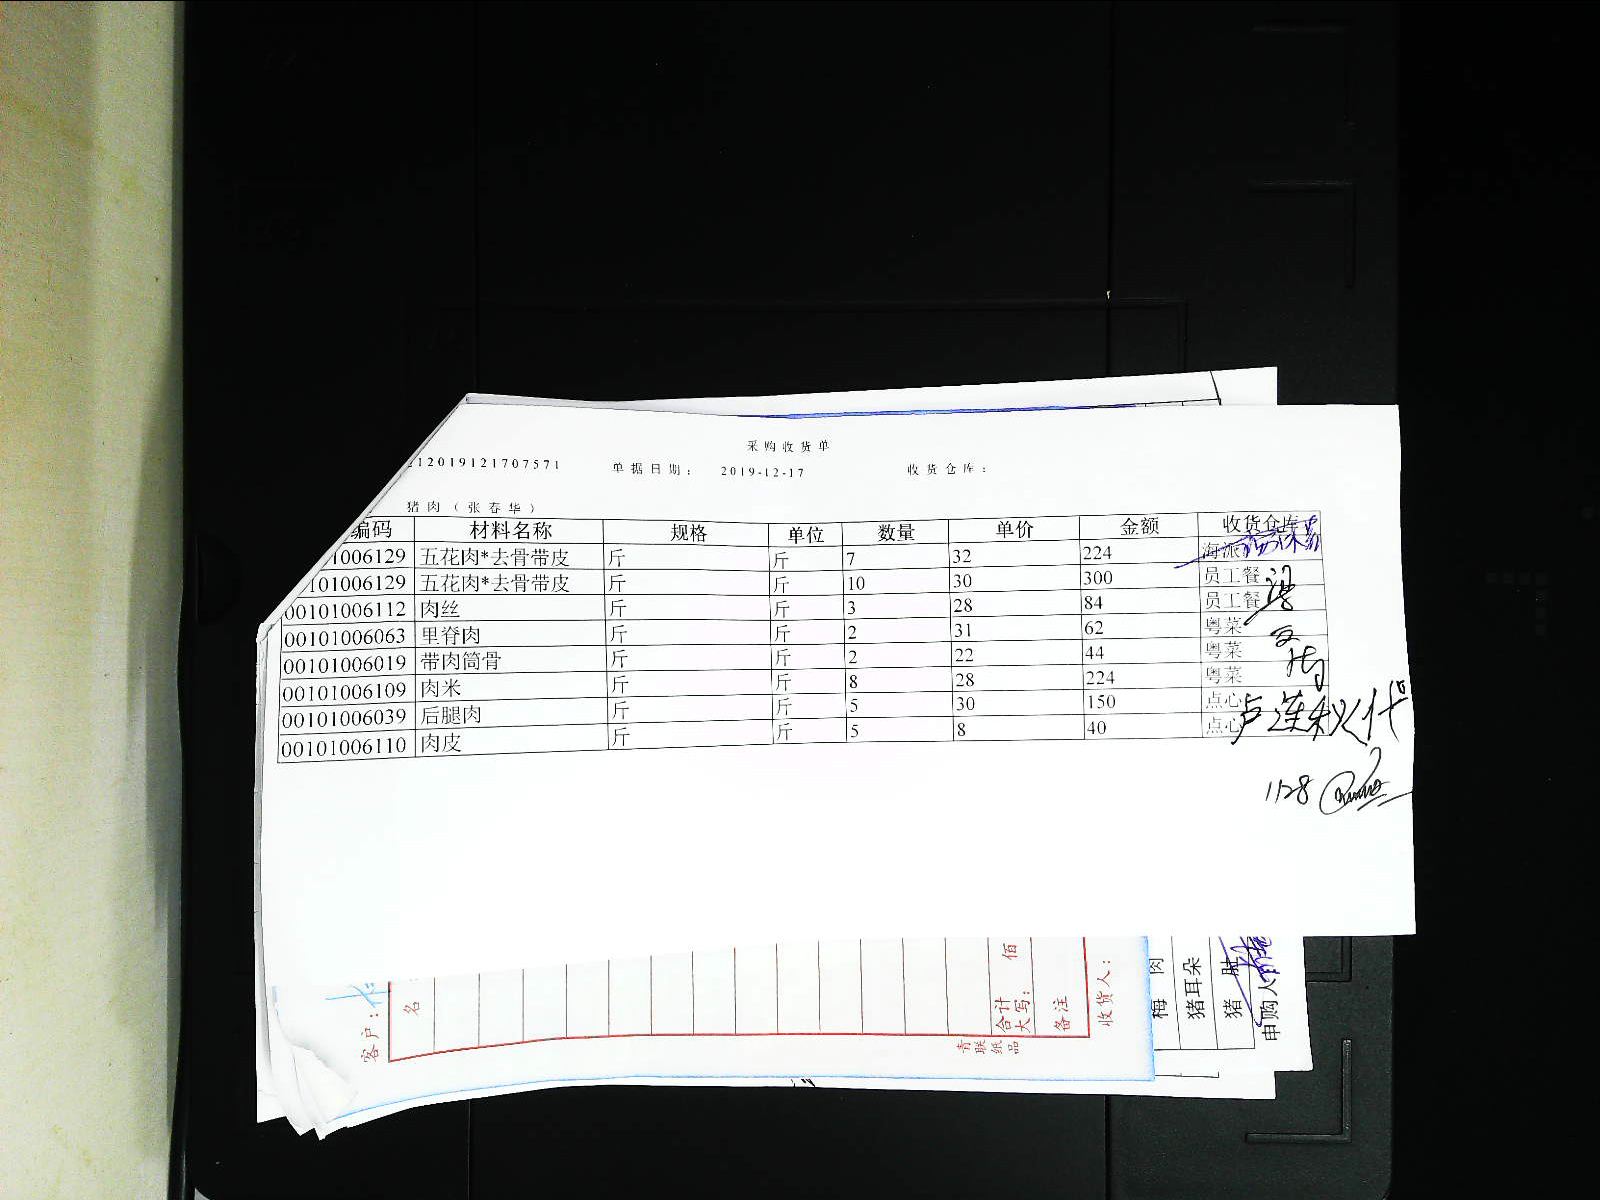 采购收货单
212019121707571 单据日期: 2019-12-17 收货仓库:
猪肉(张春华)
编码 材料名称 规格 单位 数量 单价 金额 收货仓库
1006129 五花肉*去骨带皮 斤 斤 7 32 224 海派
101006129 五花肉*去骨带皮 斤 斤 10 30 300 员工餐
00101006112 肉丝 斤 斤 3 28 84 员工餐
00101006063 里脊肉 斤 斤 2 31 62 粤菜
00101006019 带肉筒骨 斤 斤 2 22 44 粤菜
00101006109 肉米 斤 斤 8 28 224 粤菜
00101006039 后腿肉 斤 斤 5 30 150 点心
00101006110 肉皮 斤 斤 5 8 40 点心
1128
客户:
名
合计
大写: 佰
备注
收货人:
青联纸品
梅肉
猪耳朵
猪肚
申购人